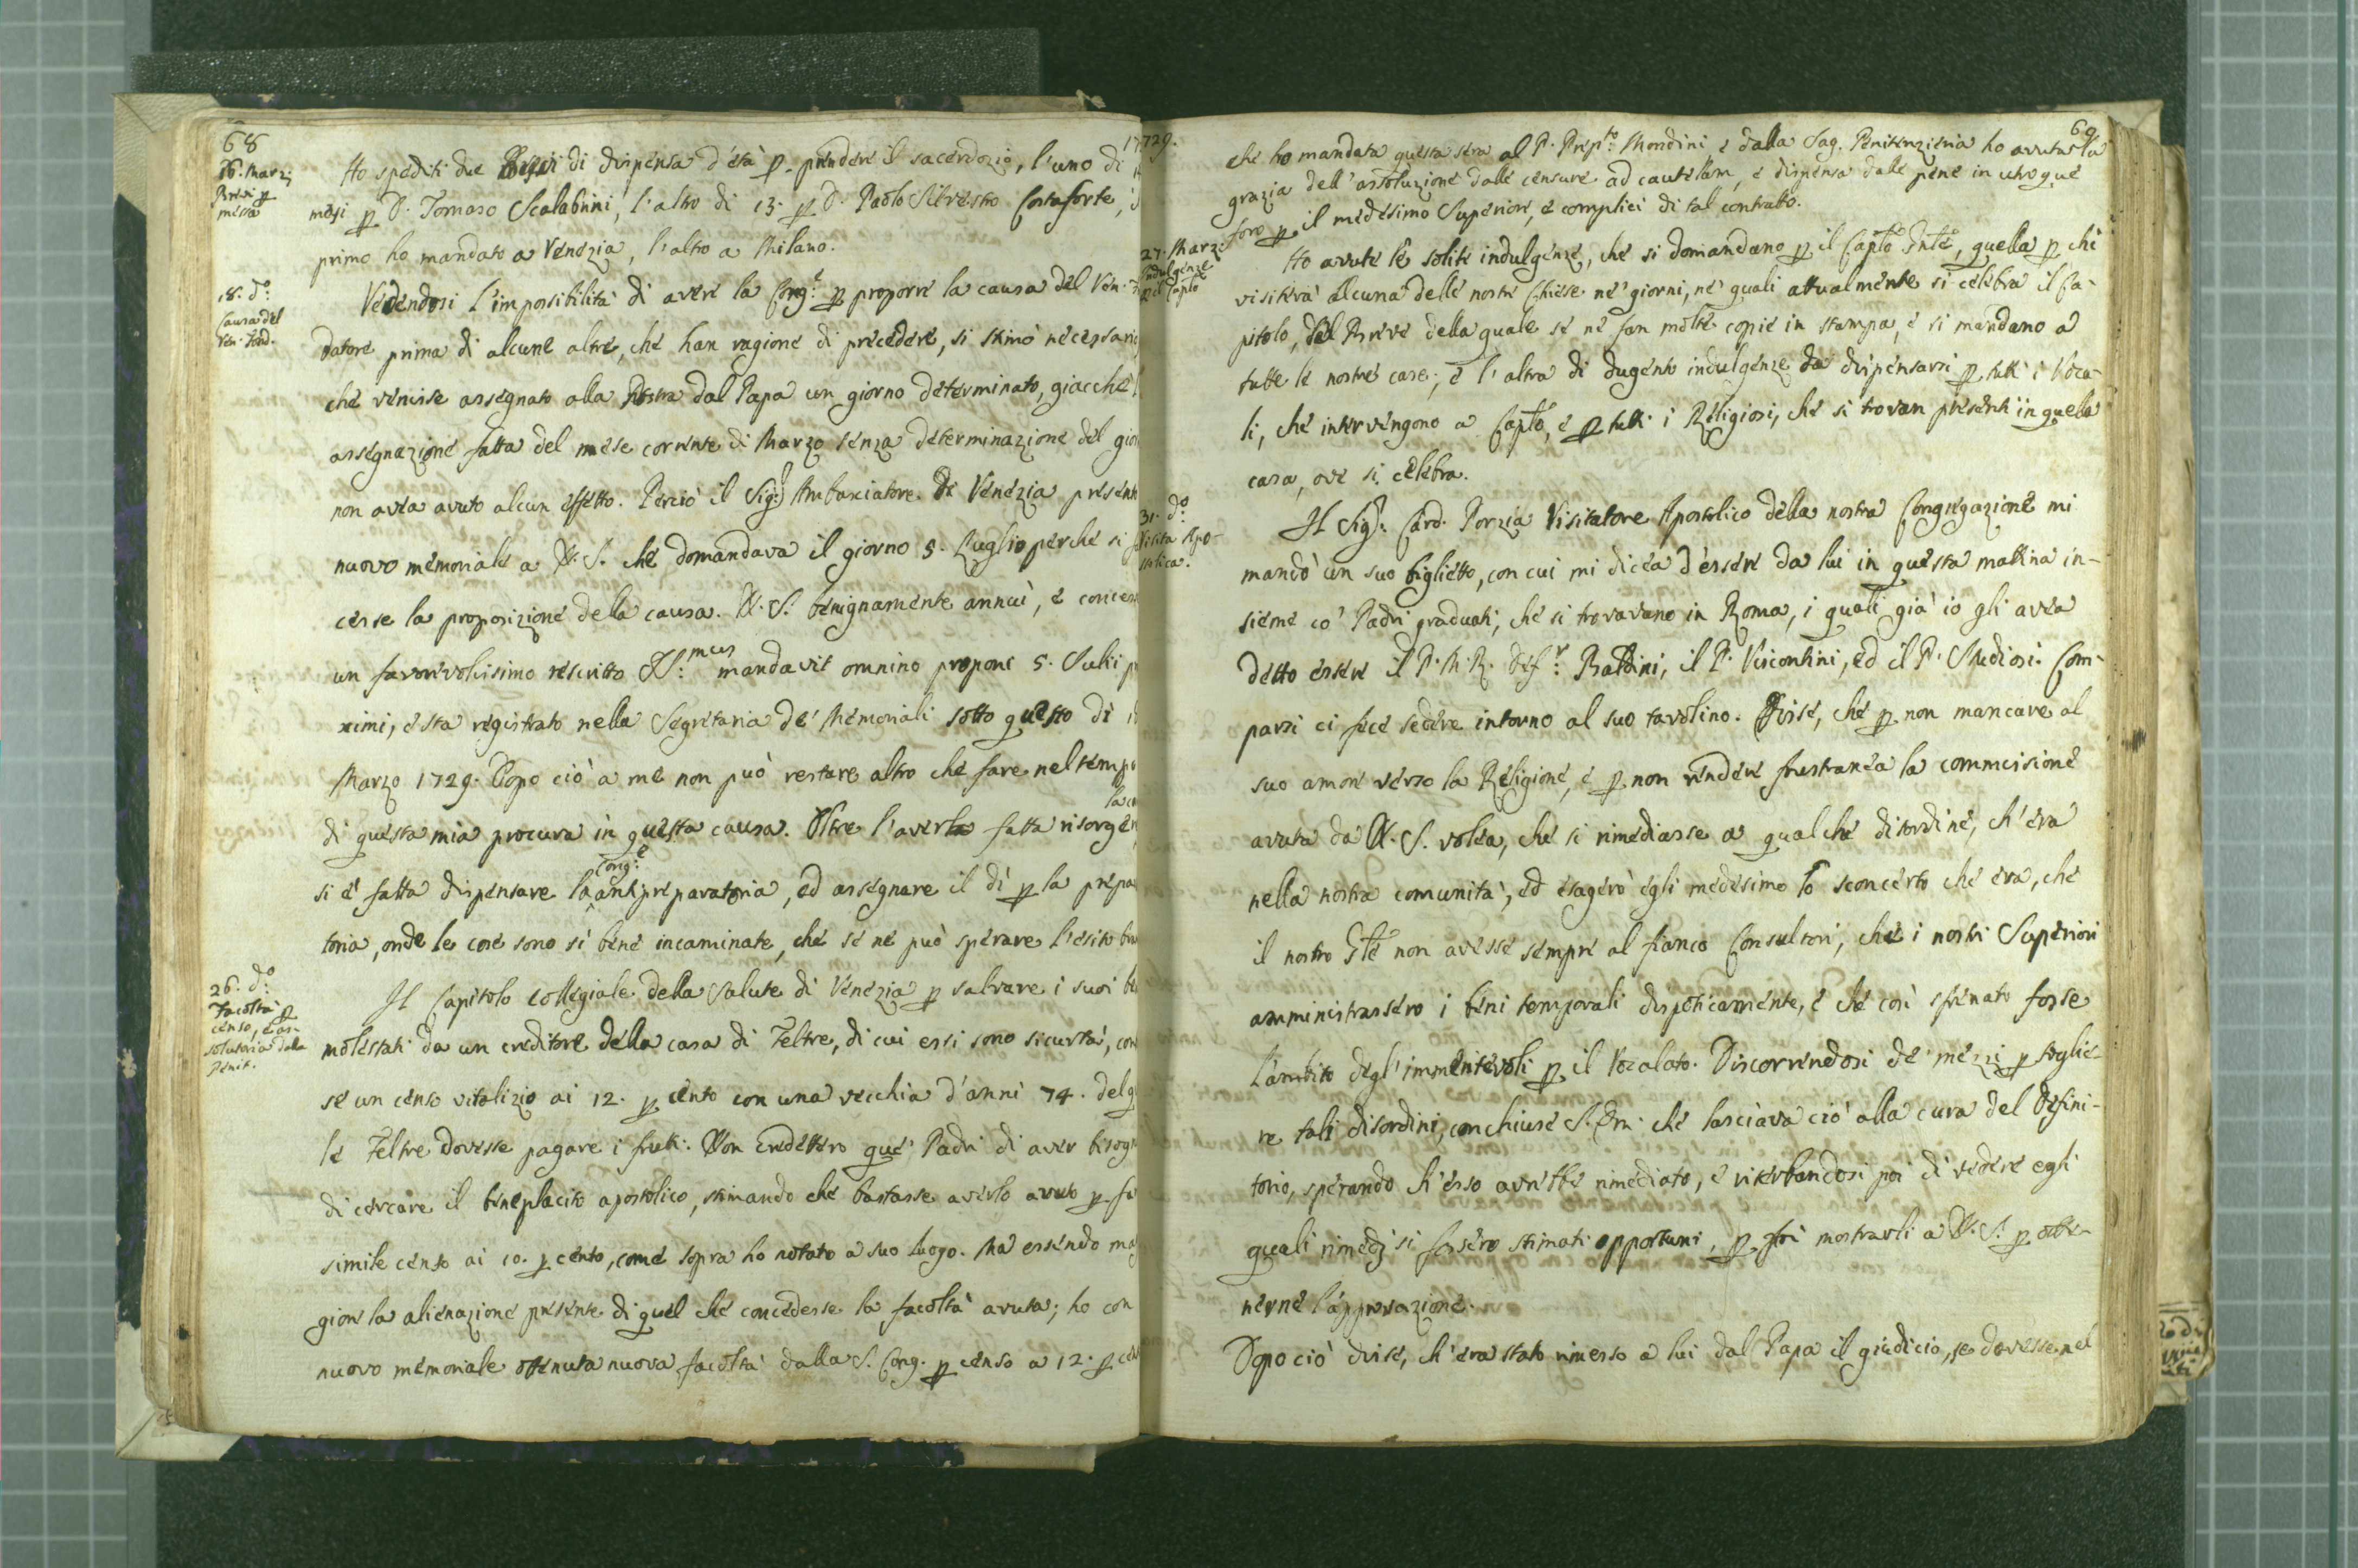 68
1729.
16. Marzi
Brevi p
messa
Ho spediti due Brevi di dispensa d'età p. prendere il sacerdozio, l'uno di
mesi p D. Tomaso Scalabrini, l'altro di 13. p D. Paolo Silvestro Costaforte,
primo ho mandato a Venezia, l'altro a Milano.
18. do:
Causa del
Ven. Fond.
Vedendosi l'impossibilità di avere la Cong:e p proporre la causa del Ven.
datore prima di alcune altre, che han ragione di precedere, si stimò necessario
che venisse assegnato alla nostra dal Papa un giorno determinato, giacchè
assegnazione fatta del mese corrente di Marzo senza determinazione del gior
non avea avuto alcun effetto. Perciò il Sig:r Ambasciatore di Venezia presentò
nuovo memoriale a N. S. che domandava il giorno 5. Luglio perché si
cesse la proposizione della causa. N. S. benignamente annuì, e conces
un favorevolissimo rescritto SS:mus mandavit omnino proponi 5. Julii p
ximi, e sta registrato nella Segretaria de' Memoriali sotto questo dì
Marzo 1729. Dopo ciò a me non può restare altro che fare nel tempo
di questa mia procura in questa causa. Oltre l'averla fatta risorgere,
si è fatta dispensare la Cong:e antipreparatoria, ed assegnare il dì p la prepa
toria, onde le cose sono sì bene incaminate, che se ne può sperare l'esito
26. do:
Facoltà p
censo, e as-
solutoria dalla
Penit.
Il Capitolo collegiale della Salute di Venezia p salvare i suoi
molestati da un creditore della casa di Feltre, di cui essi sono sicurtà, con
se un censo vitalizio ai 12. p cento con una vecchia d'anni 74. del q
le Feltre dovesse pagare i frutti. Non credettero que' Padri di aver bisogn
di cercare il beneplacito apostolico, stimando che bastasse averlo avuto p
simile censo ai 10. p cento, come sopra ho notato a suo luogo. Ma essendo mag
giore la alienazione presente di quel che concedesse la facoltà avuta; ho con
nuovo memoriale ottenuta nuova facoltà dalla S. Cong. p censo a 12. p cen
69.
che ho mandata questa sera al P. Prep:to Mondini e dalla Sag. Penitenzieria ho avuta la
grazia dell'assoluzione dalle censure ad cautelam, e dispensa dalle pene in utroque
foro p il medesimo Superiore, e complici di tal contratto.
27. Marzi
Indulgenze
p il Caplo
Ho avute le solite indulgenze, che si domandano p il Caplo Gnle, quella p chi
visiterà alcuna delle nostre Chiese ne' giorni, ne' quali attualmente si celebra il Ca-
pitolo, del Breve della quale se ne fan molte copie in stampa, e si mandano a
tutte le nostre case; e l'altra di dugento indulgenze da dispensarsi p tutti i Voca-
li, che intervengono a Caplo, e p tutti i Religiosi, che si trovan presenti in quella
casa, ove si celebra.
31. do:
Visita Apo-
stolica.
Il Sig:r Card. Porzia Visitatore Apostolico della nostra Congregazione mi
mandò un suo biglietto, con cui mi dicea d'essere da lui in questa mattina in-
sieme co' Padri graduati, che si trovavano in Roma, i quali già io gli avea
detto essere il P. M. R. Def:r Baldini, il P. Viscontini, ed il P. Studiosi. Com-
parsi ci fece sedere intorno al suo tavolino. Disse, che p non mancare al
suo amore verso la Religione, e p non rendere frustranea la commissione
avuta da N. S. volea, che si rimediasse a qualche disordine, ch'era
nella nostra comunità, ed esagerò egli medesimo lo sconcerto che era, che
il nostro Gle non avesse sempre al fianco Consultori, che i nostri Superiori
amministrassero i beni temporali dispoticamente, e che così sfrenato fosse
l'ambito degl'immeritevoli p il Vocalato. Discorrendosi de' mezzi p toglie-
re tali disordini, conchiuse S. Em. che lasciava ciò alla cura del Defini-
torio, sperando ch'esso avrebbe rimediato, e riserbandosi poi di vedere egli
quali rimedj si fossero stimati opportuni, p poi mostrarli a N. S. p otte-
nerne l'approvazione.
Dopo ciò disse, ch'era stato rimesso a lui dal Papa il giudicio, se dovesse nel